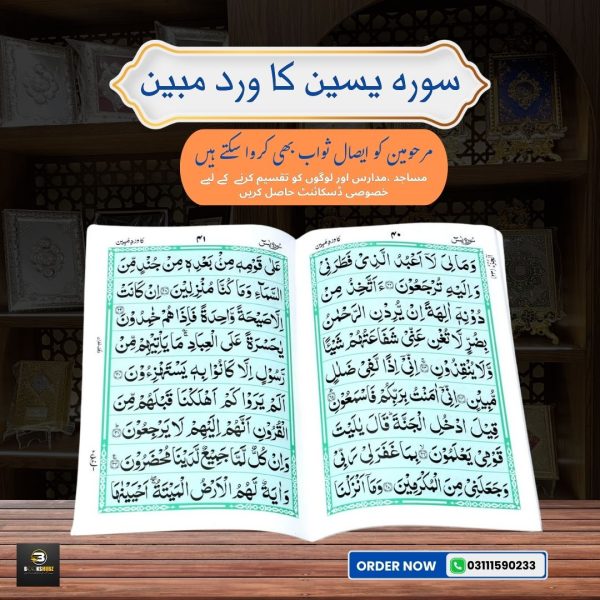 سورہ یسین کا ورد مبین
مرحومین کو ایصال ثواب بھی کروا سکتے ہیں
مساجد ،مدارس اور لوگوں کو تقسیم کرنے کے لیے
خصوصی ڈسکائنٹ حاصل کریں
۴۰
وَمَالِیَ لَاۤ اَعْبُدُ الَّذِیْ فَطَرَنِیْ
وَاِلَیْهِ تُرْجَعُوْنَ ءَاَتَّخِذُ مِنْ
دُوْنِهٖۤ اٰلِهَةً اِنْ یُّرِدْنِ الرَّحْمٰنُ
بِضُرٍّ لَّا تُغْنِ عَنِّیْ شَفَاعَتُهُمْ شَیْـًٔا
وَّلَا یُنْقِذُوْنِ اِنِّیْۤ اِذًا لَّفِیْ ضَلٰلٍ
مُّبِیْنٍ اِنِّیْۤ اٰمَنْتُ بِرَبِّكُمْ فَاسْمَعُوْنِ
قِیْلَ ادْخُلِ الْجَنَّةَ قَالَ یٰلَیْتَ
قَوْمِیْ یَعْلَمُوْنَ بِمَا غَفَرَ لِیْ رَبِّیْ
وَجَعَلَنِیْ مِنَ الْمُكْرَمِیْنَ وَمَاۤ اَنْزَلْنَا
۴۱
عَلٰی قَوْمِهٖ مِنْۢ بَعْدِهٖ مِنْ جُنْدٍ مِّنَ
السَّمَآءِ وَمَا كُنَّا مُنْزِلِیْنَ اِنْ كَانَتْ
اِلَّا صَیْحَةً وَّاحِدَةً فَاِذَا هُمْ خٰمِدُوْنَ
یٰحَسْرَةً عَلَی الْعِبَادِ مَا یَاْتِیْهِمْ مِّنْ
رَّسُوْلٍ اِلَّا كَانُوْا بِهٖ یَسْتَهْزِءُوْنَ
اَلَمْ یَرَوْا كَمْ اَهْلَكْنَا قَبْلَهُمْ مِّنَ
الْقُرُوْنِ اَنَّهُمْ اِلَیْهِمْ لَا یَرْجِعُوْنَ
وَاِنْ كُلٌّ لَّمَّا جَمِیْعٌ لَّدَیْنَا مُحْضَرُوْنَ
وَاٰیَةٌ لَّهُمُ الْاَرْضُ الْمَیْتَةُ اَحْیَیْنٰهَا
ORDER NOW 03111590233